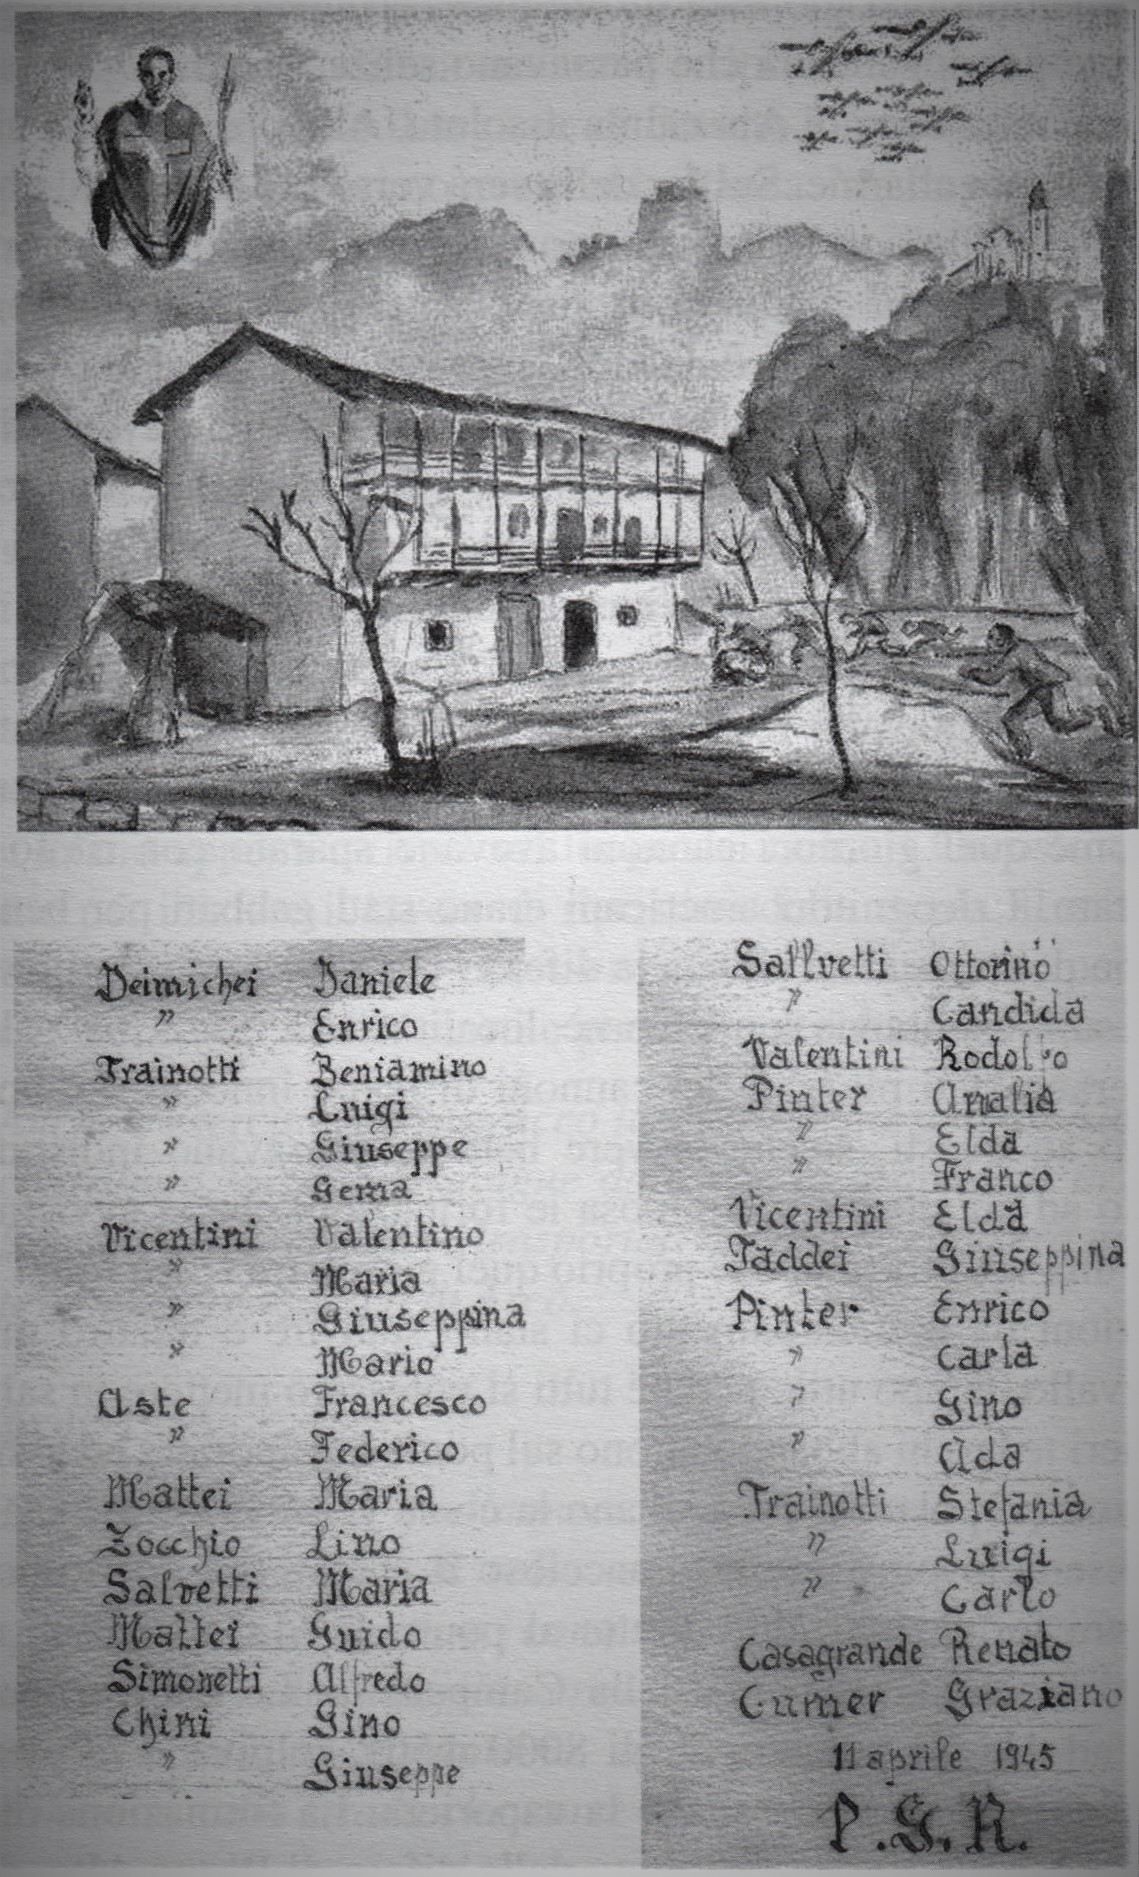 Deimichei Daniele
" Enrico
Trainotti Beniamino
" Luigi
" Giuseppe
" Gema
Vicentini Valentino
" Maria
" Giuseppina
" Mario
Aste Francesco
" Federico
Mattei Maria
Zocchio Lino
Salvetti Maria
Mattei Guido
Simonetti Alfredo
Chini Gino
" Giuseppe
Sallvetti Ottorino
" Candida
Valentini Rodolfo
Pinter Amalia
" Elda
" Franco
Vicentini Elda
Taddei Giuseppina
Pinter Enrico
" Carla
" Gino
" Ada
Trainotti Stefania
" Luigi
" Carlo
Casagrande Renato
Cumer Graziano
11 aprile 1945
P.G.R.